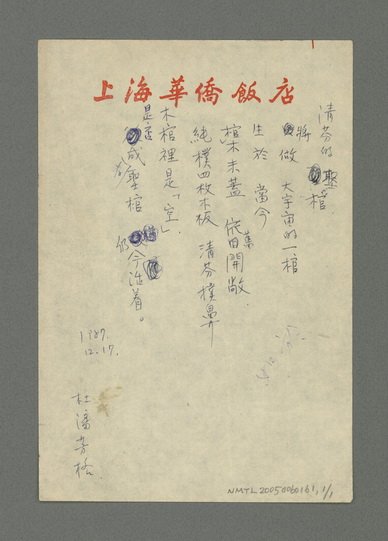 上海華僑飯店
清芬的聖棺
將做 大宇宙的一棺
生於 當今
棺木未蓋 依舊開敞.
純樸四枚木板 清芬撲鼻
木棺裡是「空」.
成聖棺 仍今活着。
1987.
12.17.
杜潘芳格
NMTL20050060161, 1/1